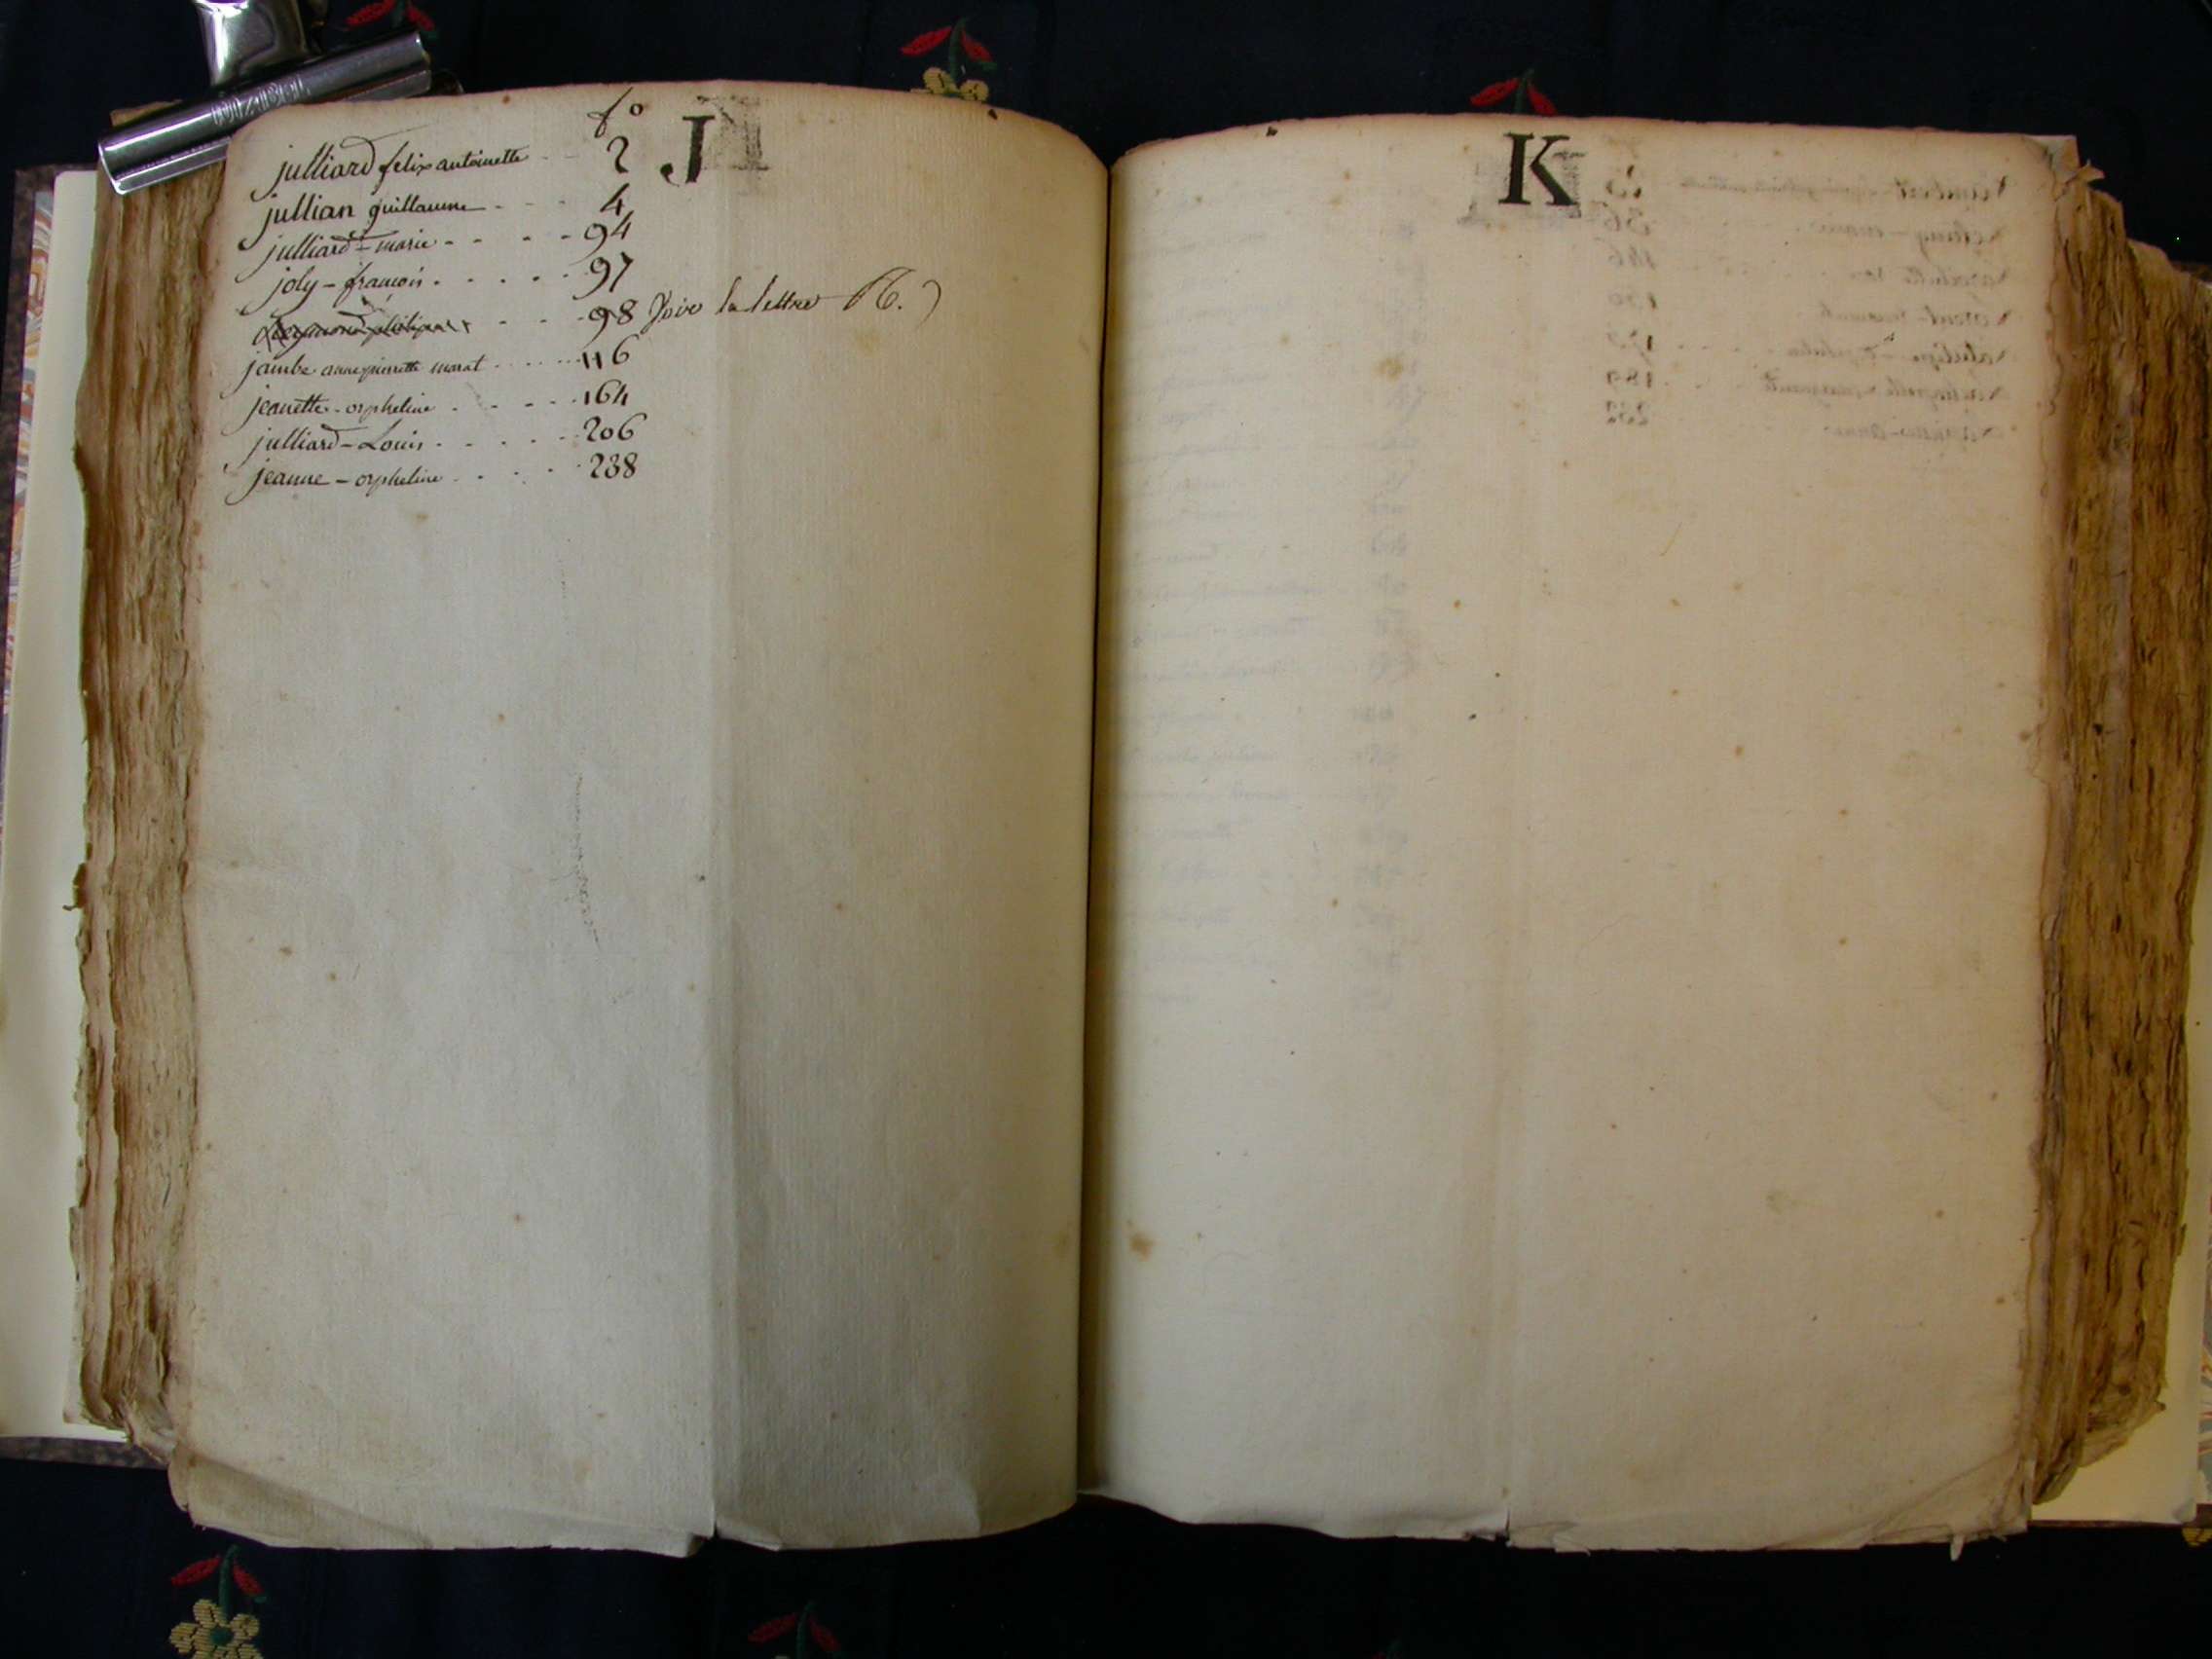 fo
J
julliard felix antoinette - - 2
jullian guillaume - - - 4
julliard - marie - - - - 94
joly - françois - - - - - 97
- - - 98 voir la lettre R.)
jambe annepierrette marat - - - - - 116
jeanette - orpheline - - - - 164
julliard - Louis - - - - - 206
jeanne - orpheline - - - - 238
K